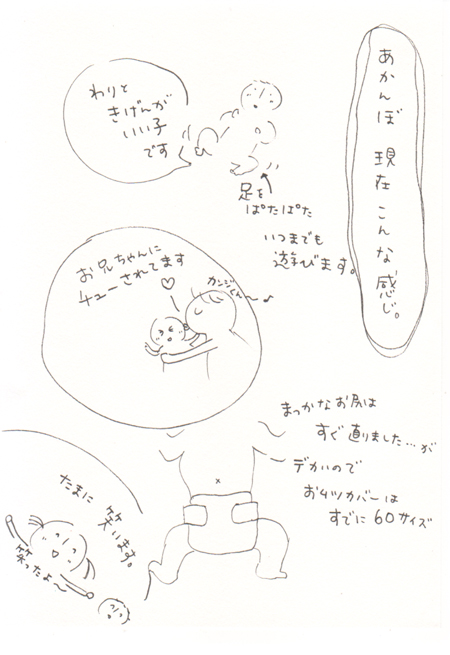 あかんぼ 現在 こんな感じ。
わりと
きげんが
いい子
です
足を
ぱたぱた
いつまでも
遊びます。
お兄ちゃんに
チューされてます
カンジくん〜♪
まっかなお尻は
すぐ直りました…が
デカいので
おムツカバーは
すでに60サイズ
たまに
笑います。
笑ったよ〜